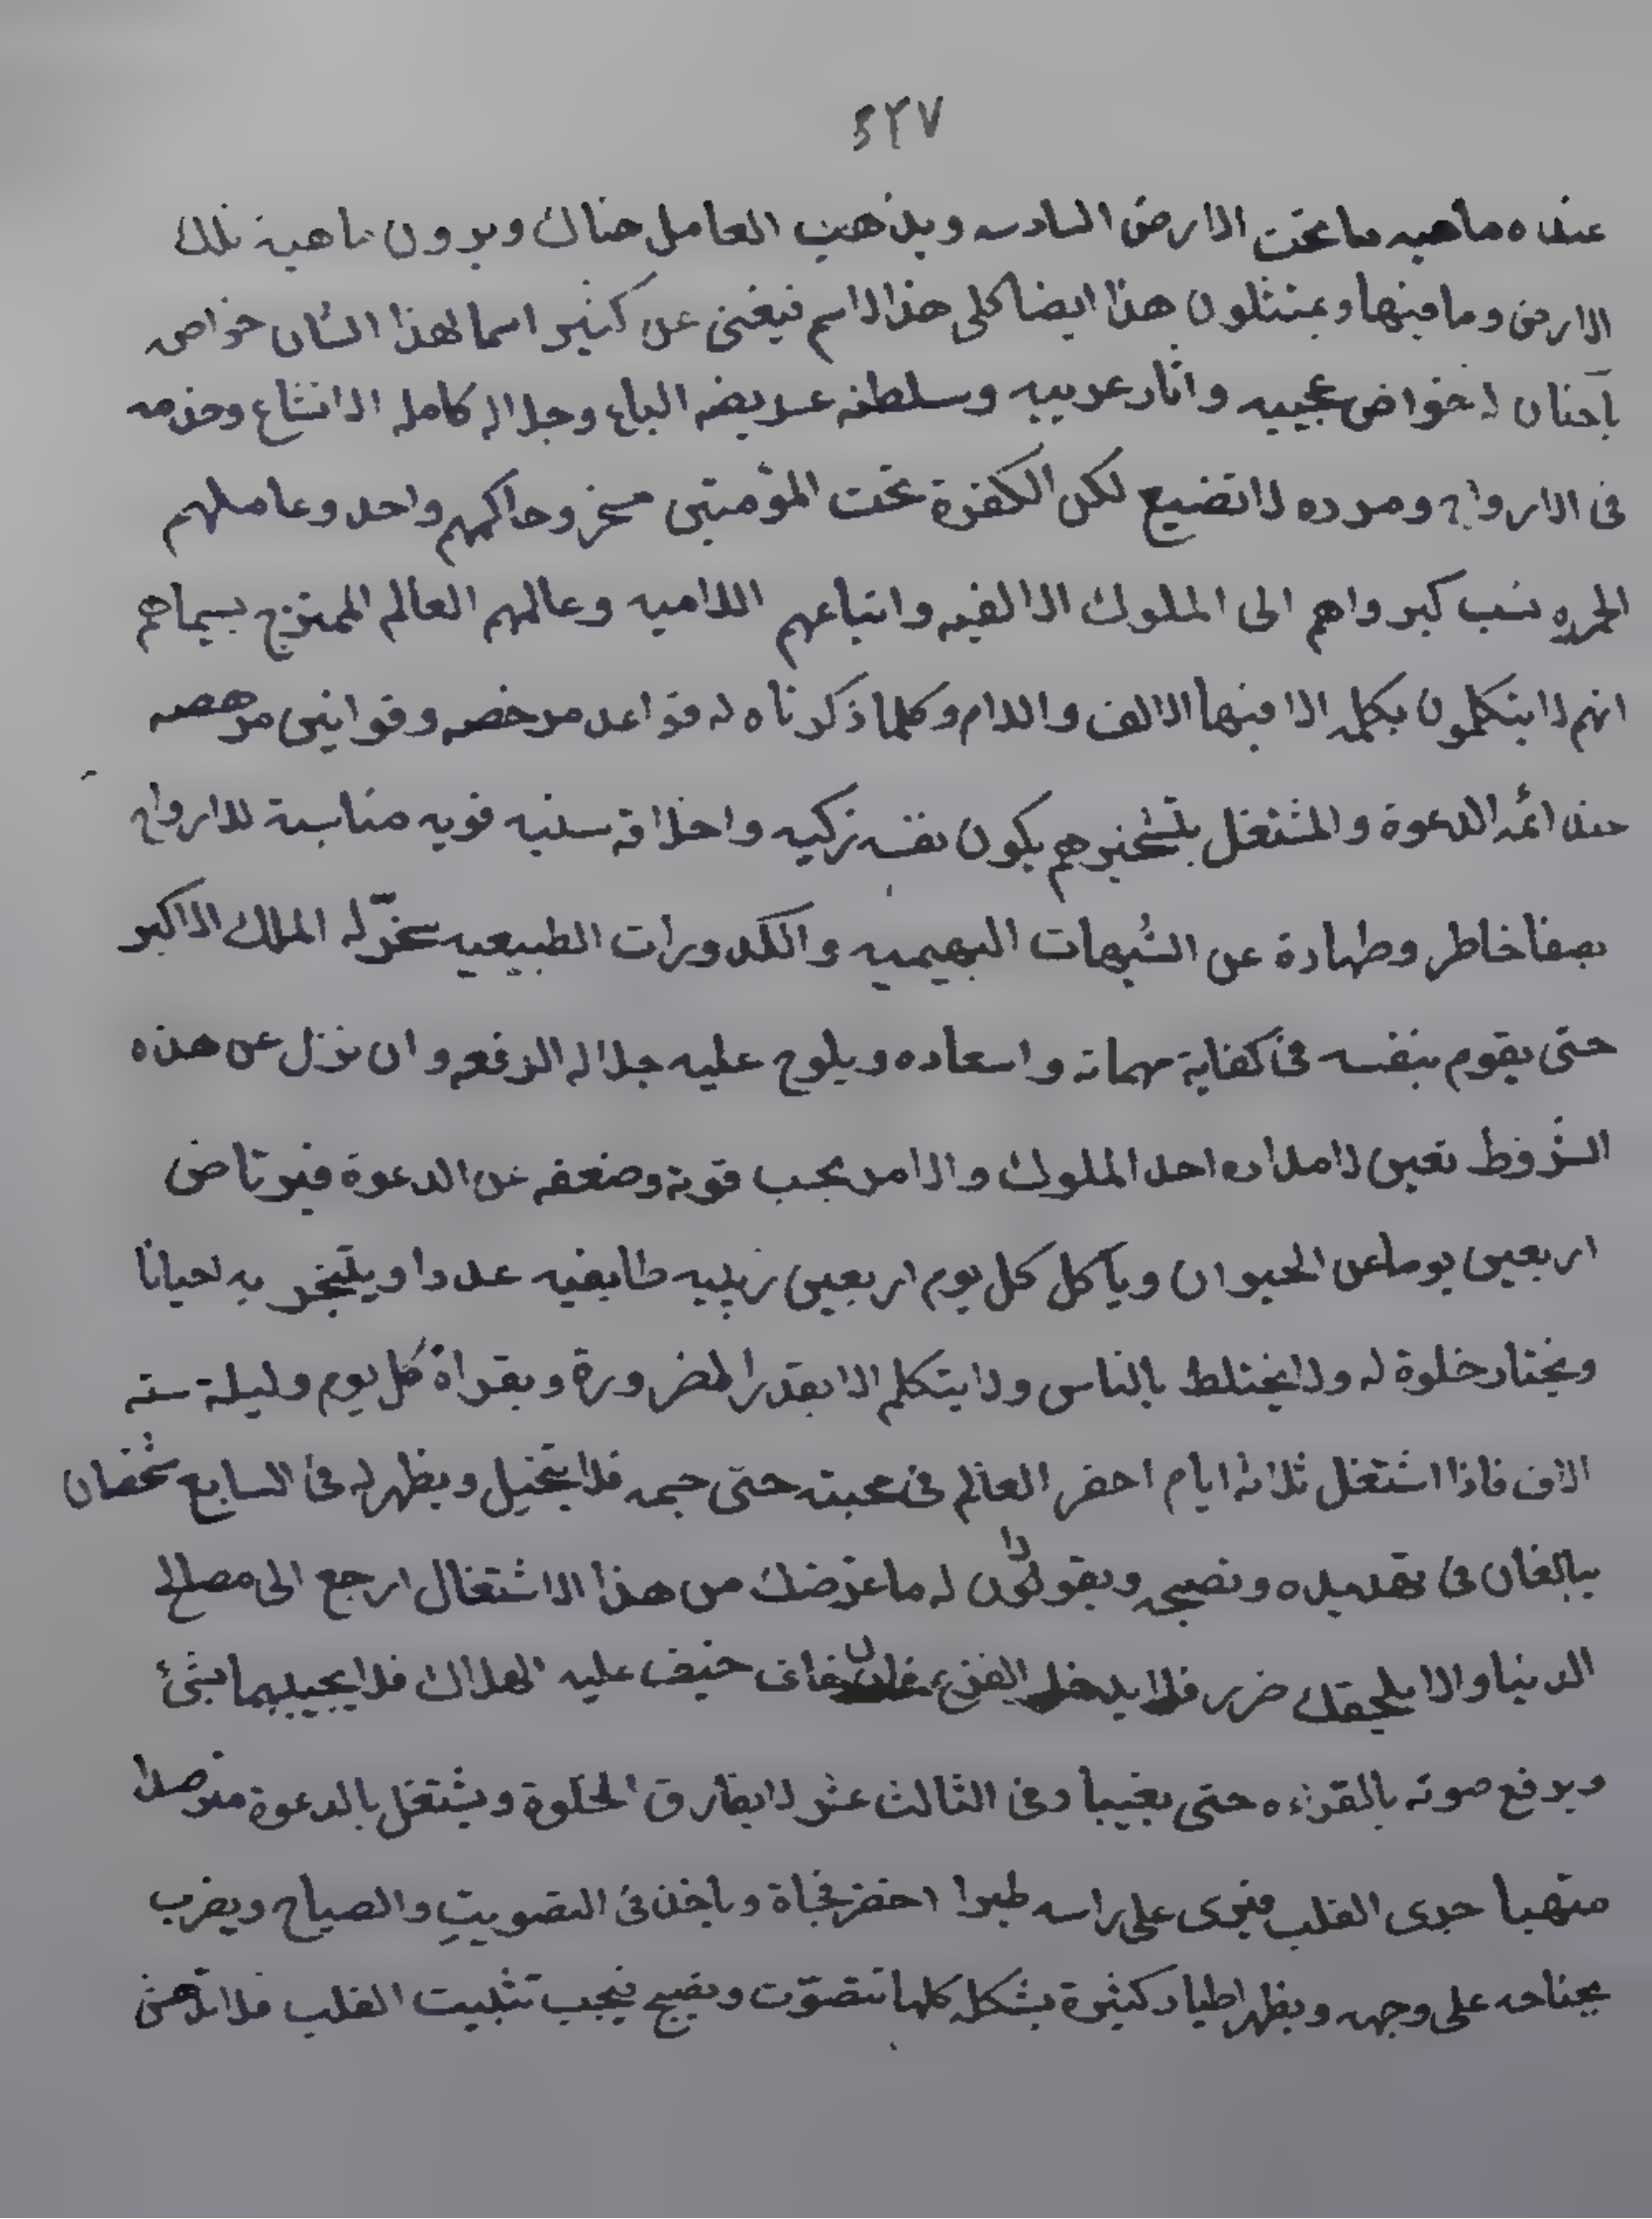 ٤٢٧
عنده ماهيه ما تحت الارض السادسه ويذهب العامل هناك ويرون ماهية تلك
الارض وما فيها ويمتثلون هذا ايضا كلى هذا الاسم فيغنى عن كثير اسما لهذا الشان خواص
باحنان له خواص عجيبه واثار غريبه وسلطنه عريضه الباع وجلاله كامله الاتساع وخدمه
فى الارواح ومرده لا تضيع لكن الكفرة تحت المؤمنين مسخر وحاكمهم واحد وعاملهم
الحمره نسب كبرواهم الى الملوك الالفيه واتباعهم اللاميه وعالمهم العالم الممتزج بسيماهم
انهم لا يتكلمون بكلمه الا فيها الالف واللام وكلما ذكرناه له قواعد مرخصه وقوانين مرهصه
عند ائمه الدعوة والمشتغل بتسخيرهم يكون نفسه زكيه واخلاقه سنيه قويه مناسبة للارواح
بصفا خاطر وطهارة عن الشبهات البهيميه والكدورات الطبيعيه سخّر له الملك الاكبر
حتى يقوم بنفسه فى كفاية مهماته واسعاده ويلوح عليه جلاله الرفعه وان نزل عن هذه
الشروط تعين لامداده احد الملوك والامر بحسب قوته وضعفه عن الدعوة فيرتاض
اربعين يوما عن الحيوان وياكل كل يوم اربعين زبيبه طايفيه عددا ويتبخر به احيانا
ويختار خلوة له ولا يختلط بالناس ولا يتكلم الا بقدر الضرورة ويقراه كل يوم وليلة سته
الاف فاذا اشتغل ثلاثه ايام احضر العالم فى عبته حتى جمه فلا يتخيل ويظهر له فى السابع شخصان
يبالغان فى تهديده ونصيحه ويقولان له ما غرضك من هذا الاشتغال ارجع الى مصالح
الدنيا والا يلحقك ضرر فلا يدخل الفزع فان خاف خيف عليه الهلاك فلا يجيبهما بشئ
ويرفع صوته بالقراءه حتى يغيبا وفى الثالث عشر لا يفارق الخلوة ويشتغل بالدعوة مترصدا
متهيا جرى القلب فيرى على راسه طيرا اخضر فجاة وياخذ فى التصويت والصياح ويضرب
بجناحه على وجهه ويظهر اطيار كثيرة بشكله كلها تتصوّت وتصيح فيجب تثبيت القلب فلا تدهش